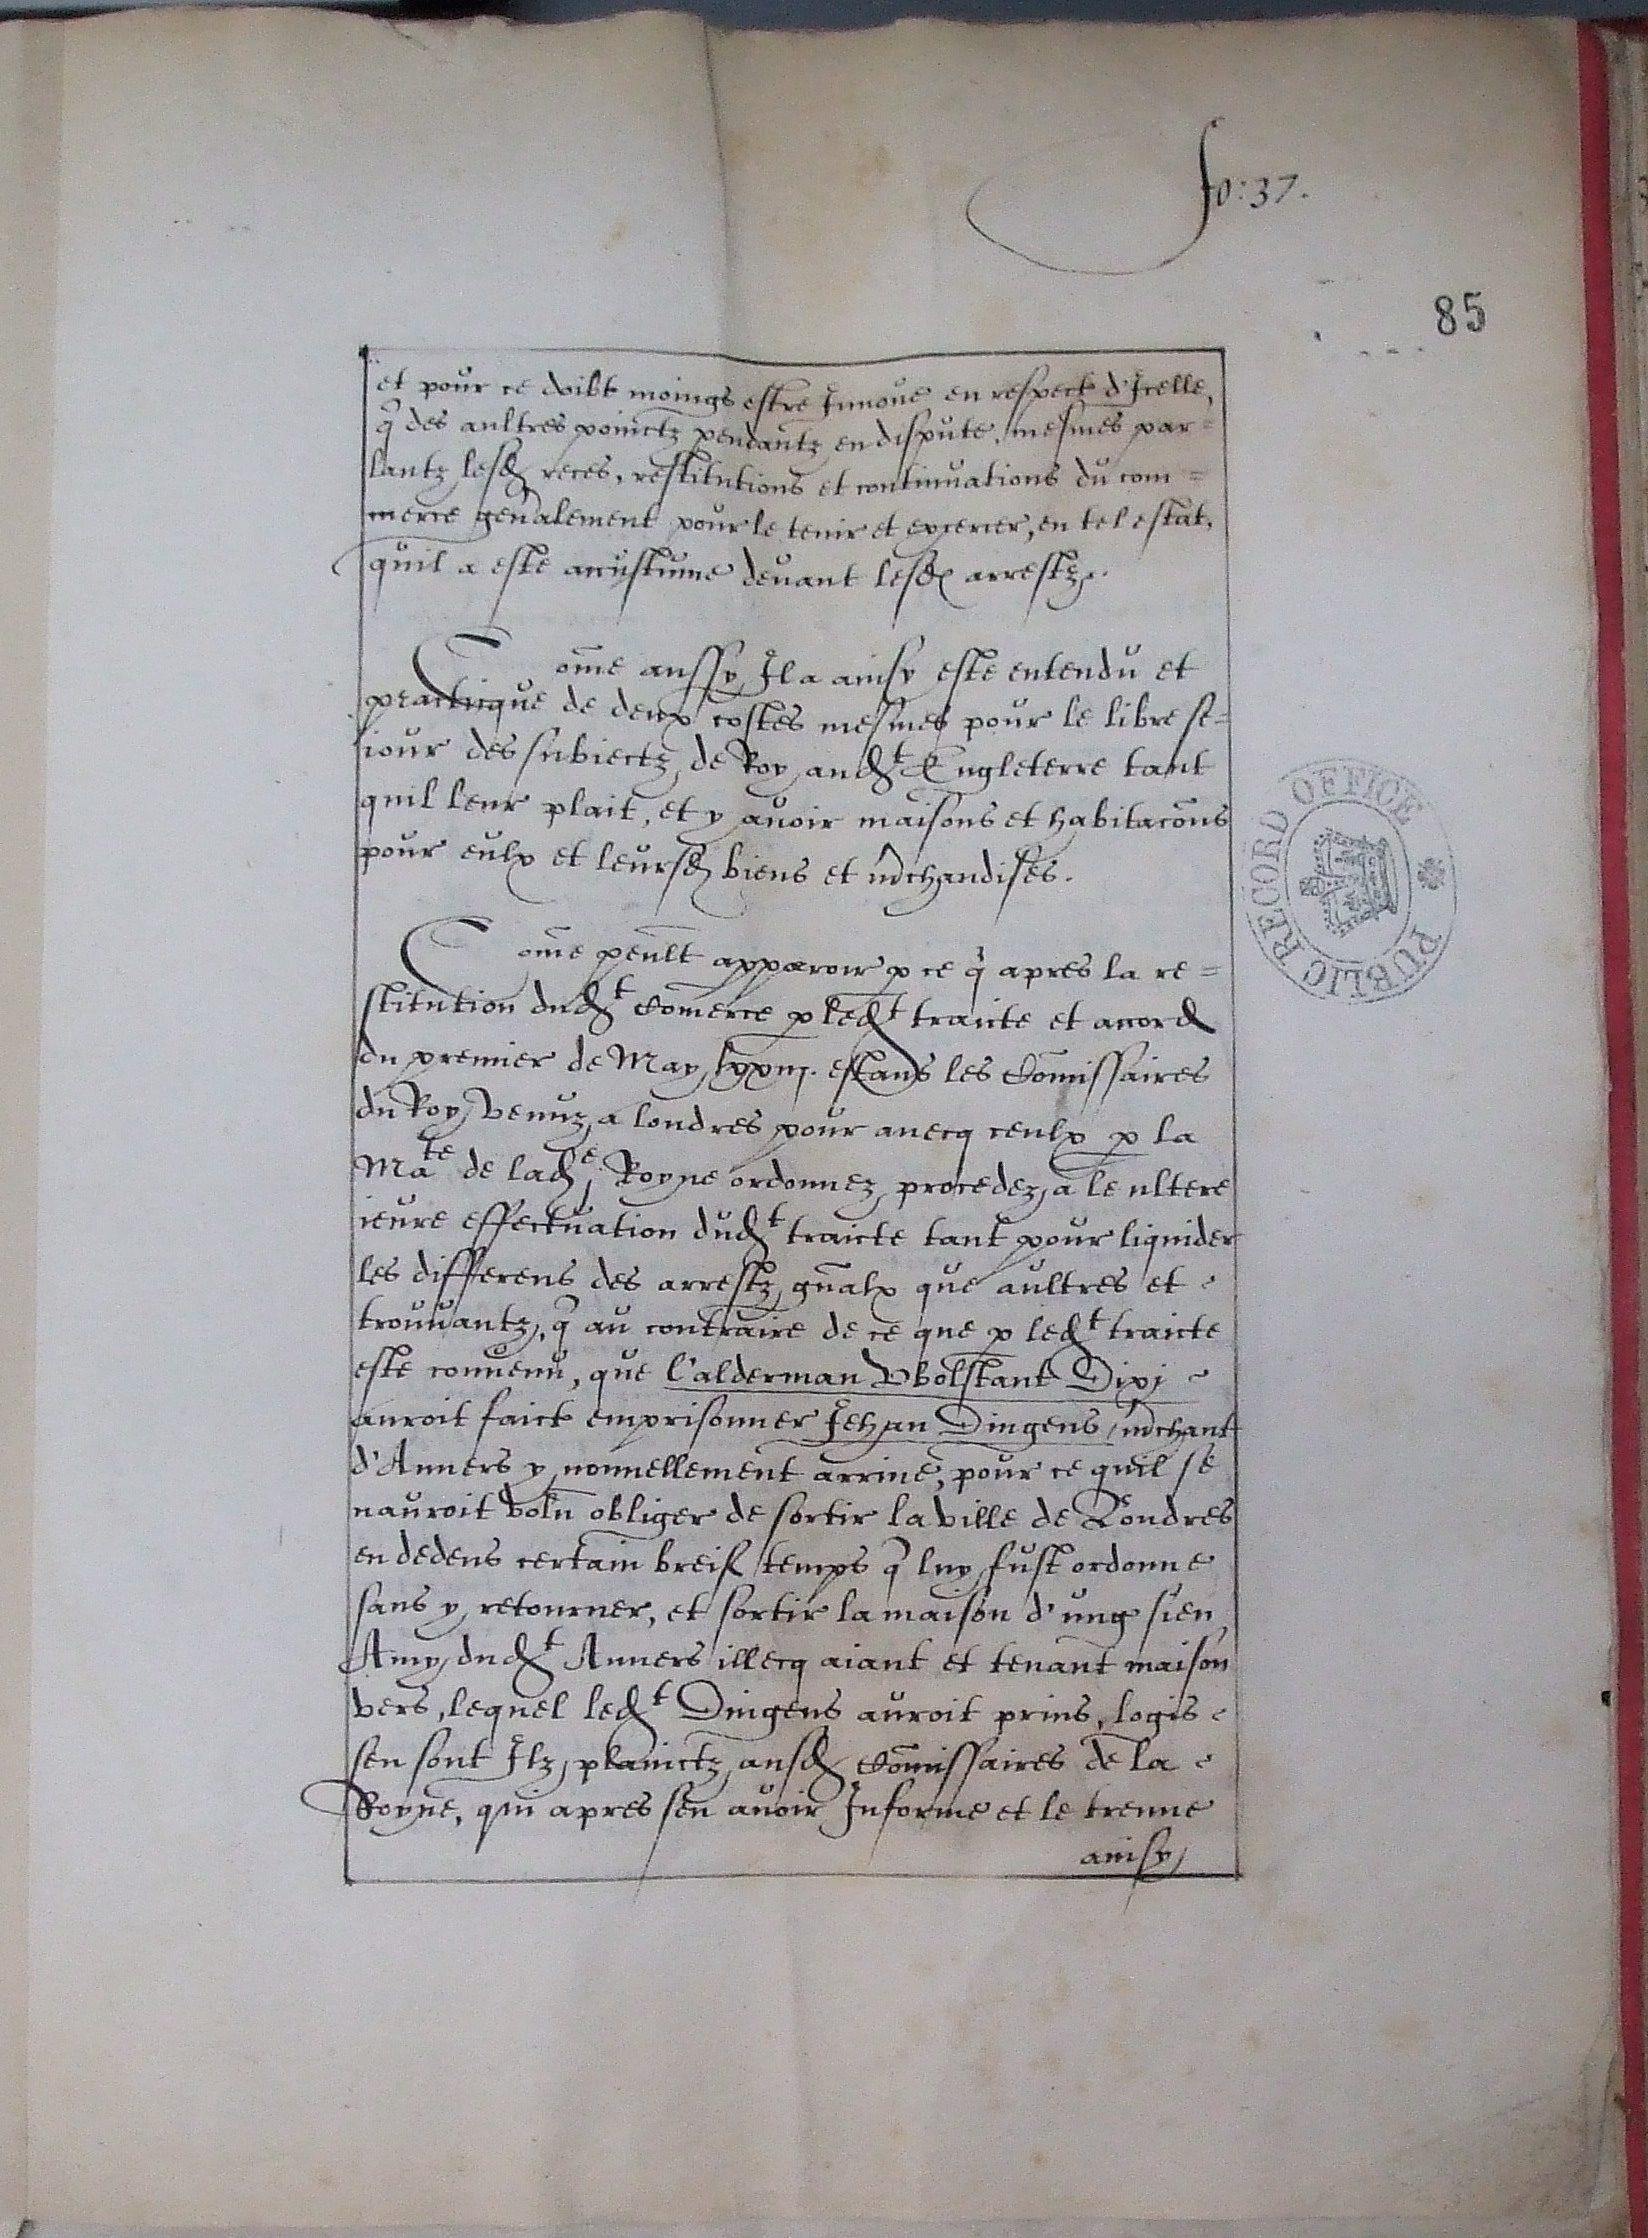 fo: 37.
85
et pour ce doibt moings estre Innoue en respect d'Icelle,
q̃ des aultres poinctz pendantz en dispute, mesmes par=
lantz lesd reces, restitutions et continuations du com=
merce gen̄alement pour le tenir et exercer, en tel estat,
quil a este accustume deuant lesd arrestz.
Com̄e aussy Il a ainsy este entendu et
practicque de deux costes mesmes pour le libre se=
iour des subiectz de Roy aud.t Engleterre tant
quil leur plait, et y auoir maisons et habitac̄ons
pour eulx et leursd biens et m̄chandises.
Com̄e peult apparoir p ce q̃ apres la re=
stitution dud.t Com̄erce p led.t traicte et accord
du premier de May lxxiij. estans les Com̄issaires
du Roy venuz a londres pour auecq ceulx p la
Ma.te de lad.e Royne ordonnez procedez a le ultere
ieure effectuation dud.t traicte tant pour liquider
les differens des arrestz gn̄alx que aultres et
trouuantz, q̃ au contraire de ce que p led.t traicte
este conuenu, que l'alderman Vbolstant Dixi
auroit faict emprisonner Jehan Dingens m̄chant
d'Anuers y nouuellement arriué, pour ce quil se
nauroit volu obliger de sortir la ville de Londres
en dedens certain breif temps q̃ luy fust ordonne
sans y retourner, et sortir la maison d'ung sien
Amy dud.t Anuers illecq aiant et tenant maison
vers, lequel led.t Dingens auroit prins, logis
sen sont Ilz plainctz ausd Com̄issaires de la
Royne, qui apres sen auoir Informe et le treuue
ainsy
PUBLIC RECORD OFFICE